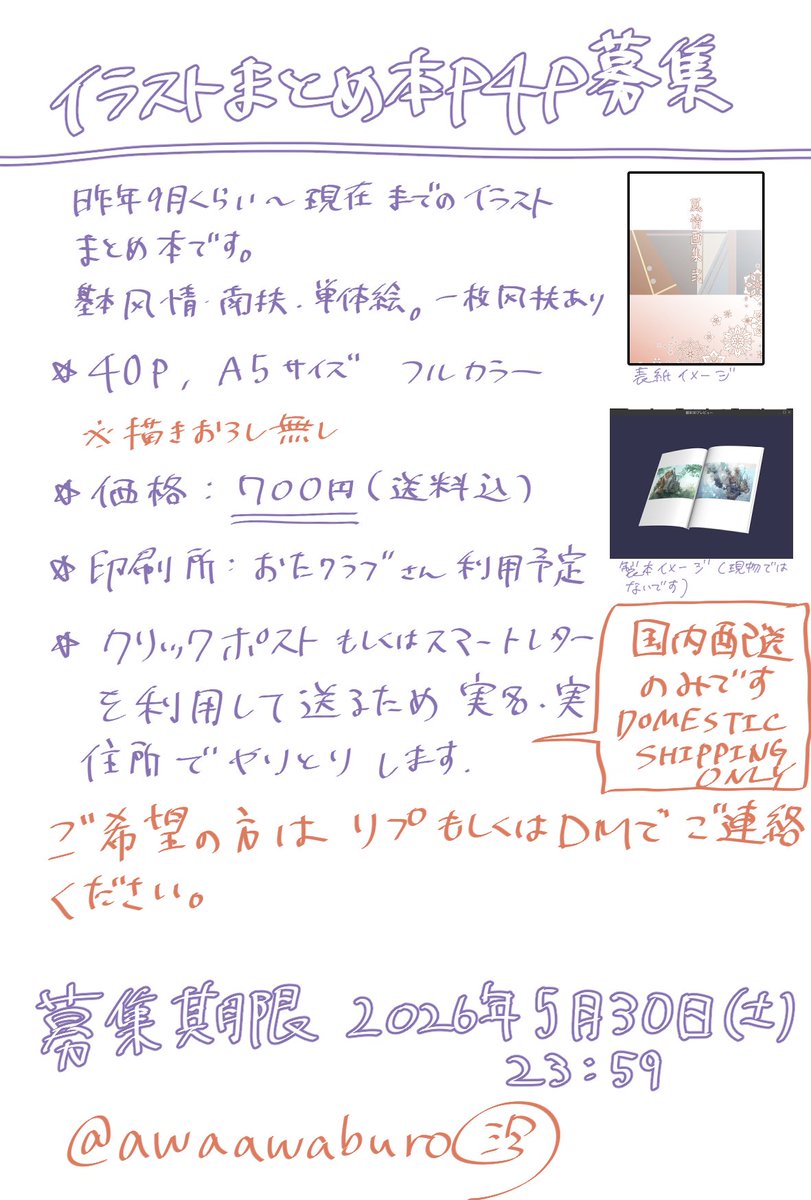 イラストまとめ本P4P募集
昨年9月くらい〜現在までのイラスト
まとめ本です。
基本風情・南扶・単体絵。一枚风扶あり
風情画集 弐
表紙イメージ
* 40P, A5サイズ フルカラー
※描きおろし無し
* 価格: 700円(送料込)
製本イメージ(現物では
ないです)
* 印刷所: おたクラブさん利用予定
* クリックポストもしくはスマートレター
を利用して送るため 実名・実
住所でやりとりします.
国内配送
のみです
DOMESTIC
SHIPPING
ONLY
ご希望の方は リプもしくはDMでご連絡
ください。
募集期限 2026年5月30日(土)
23:59
@awaawaburo